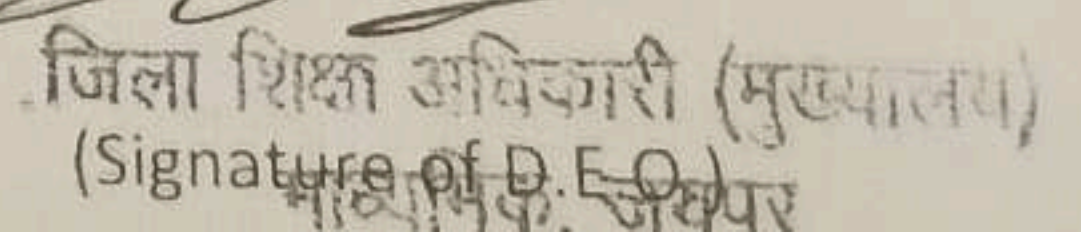 जिला शिक्षा अधिकारी (मुख्यालय)
(Signature of D.E.O.)
माध्यमिक,